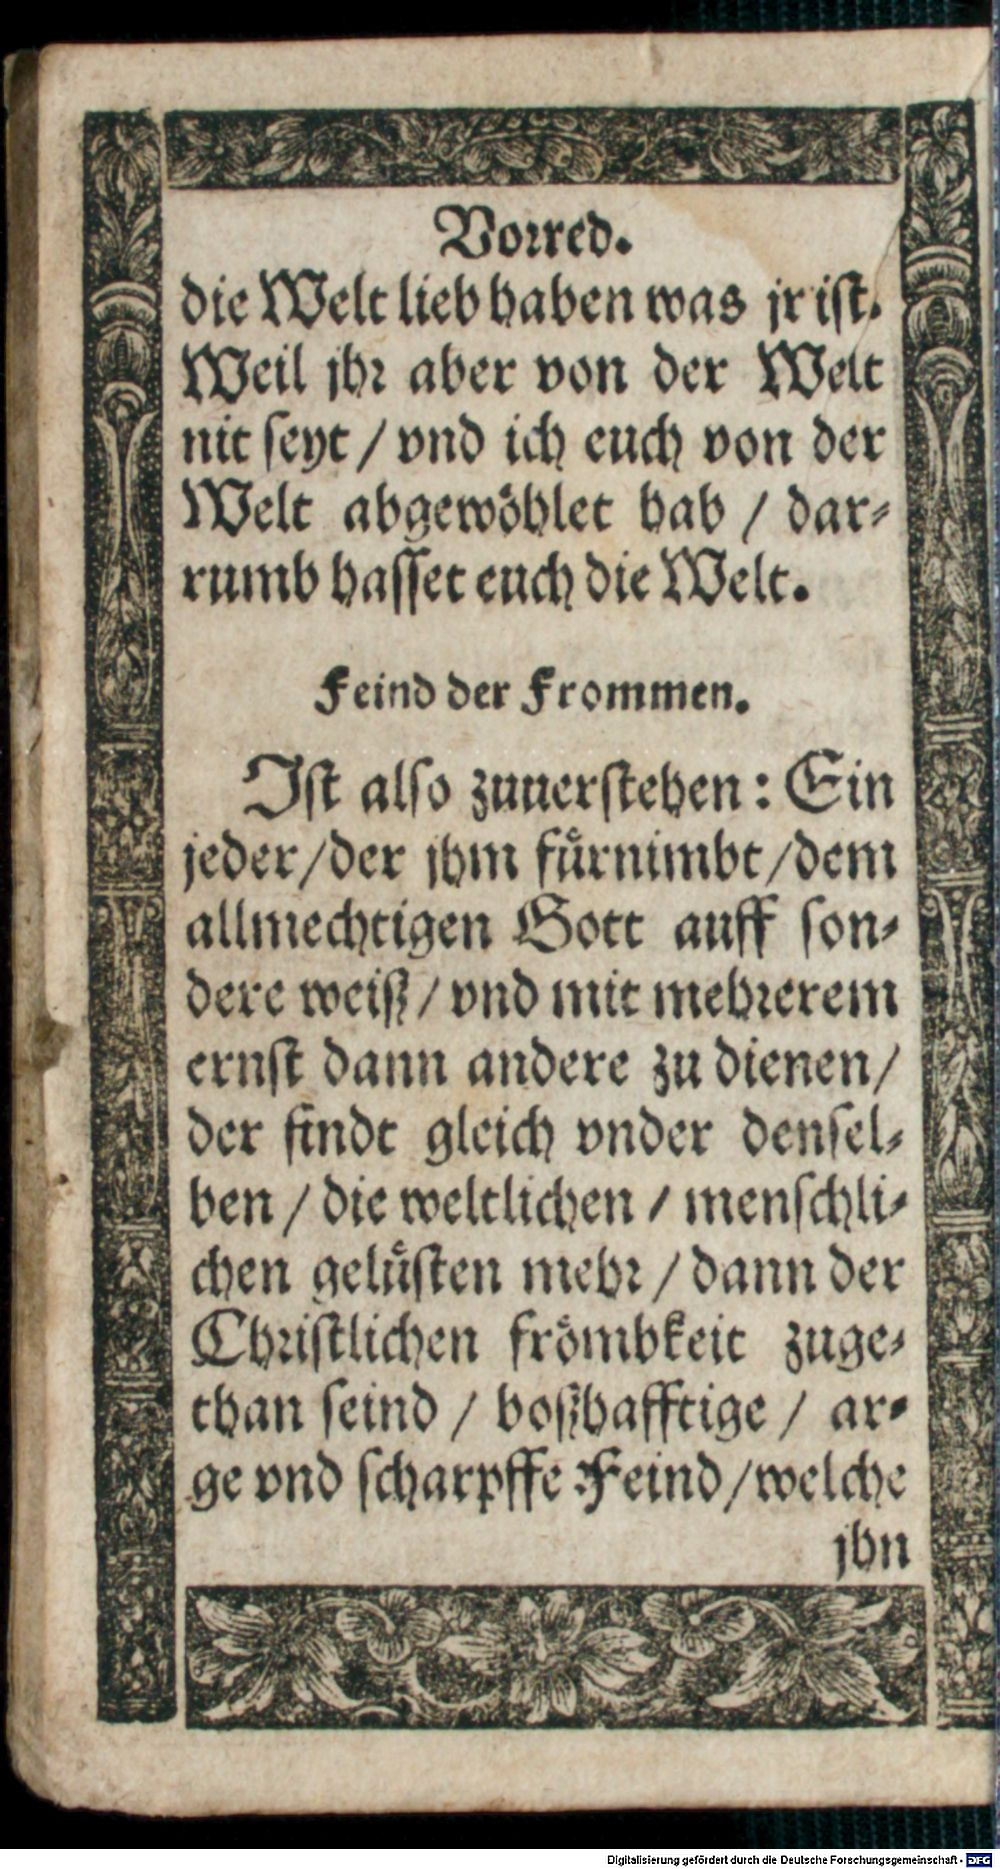 Vorred.
die Welt lieb haben was jr ist.
Weil jhr aber von der Welt
nit seyt / vnd ich euch von der
Welt abgewöhlet hab / dar-
rumb hasset euch die Welt.
Feind der Frommen.
Ist also zuuerstehen: Ein
jeder / der jhm fürnimbt / dem
allmechtigen Gott auff son-
dere weiß / vnd mit mehrerem
ernst dann andere zu dienen /
der findt gleich vnder densel-
ben / die weltlichen / menschli-
chen gelüsten mehr / dann der
Christlichen frömbkeit zuge-
than seind / boßhafftige / ar-
ge vnd scharpffe Feind / welche
jhn
Digitalisierung gefördert durch die Deutsche Forschungsgemeinschaft - DFG